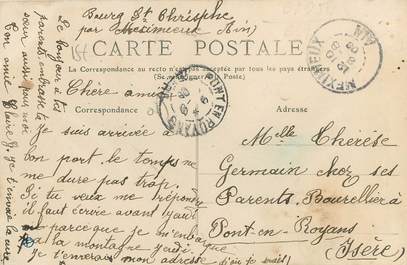 Bourg St Christophe
par Meximieux Ain)
CARTE POSTALE
La Correspondance au recto n'est pas acceptée par tous les pays étrangers
(Se renseigner à la Poste)
Correspondance
Adresse
Chère amie
Je suis arrivée à
bon port, le temps ne
me dure pas trop.
Si tu veux me répondre
il faut écrire avant
parce que je m'embarque
à la montagne jeudi
je t'enverai mon adresse
Melle Thérèse
Germain chez ses
Parents, Bourrelier à
Pont-en-Royans
(Isère)
Le bonjour à tes
parents, embrasse ta
sœur aussi pour moi
Ton amie Claire
MEXIMIEUX
AIN
PONT EN ROYANS